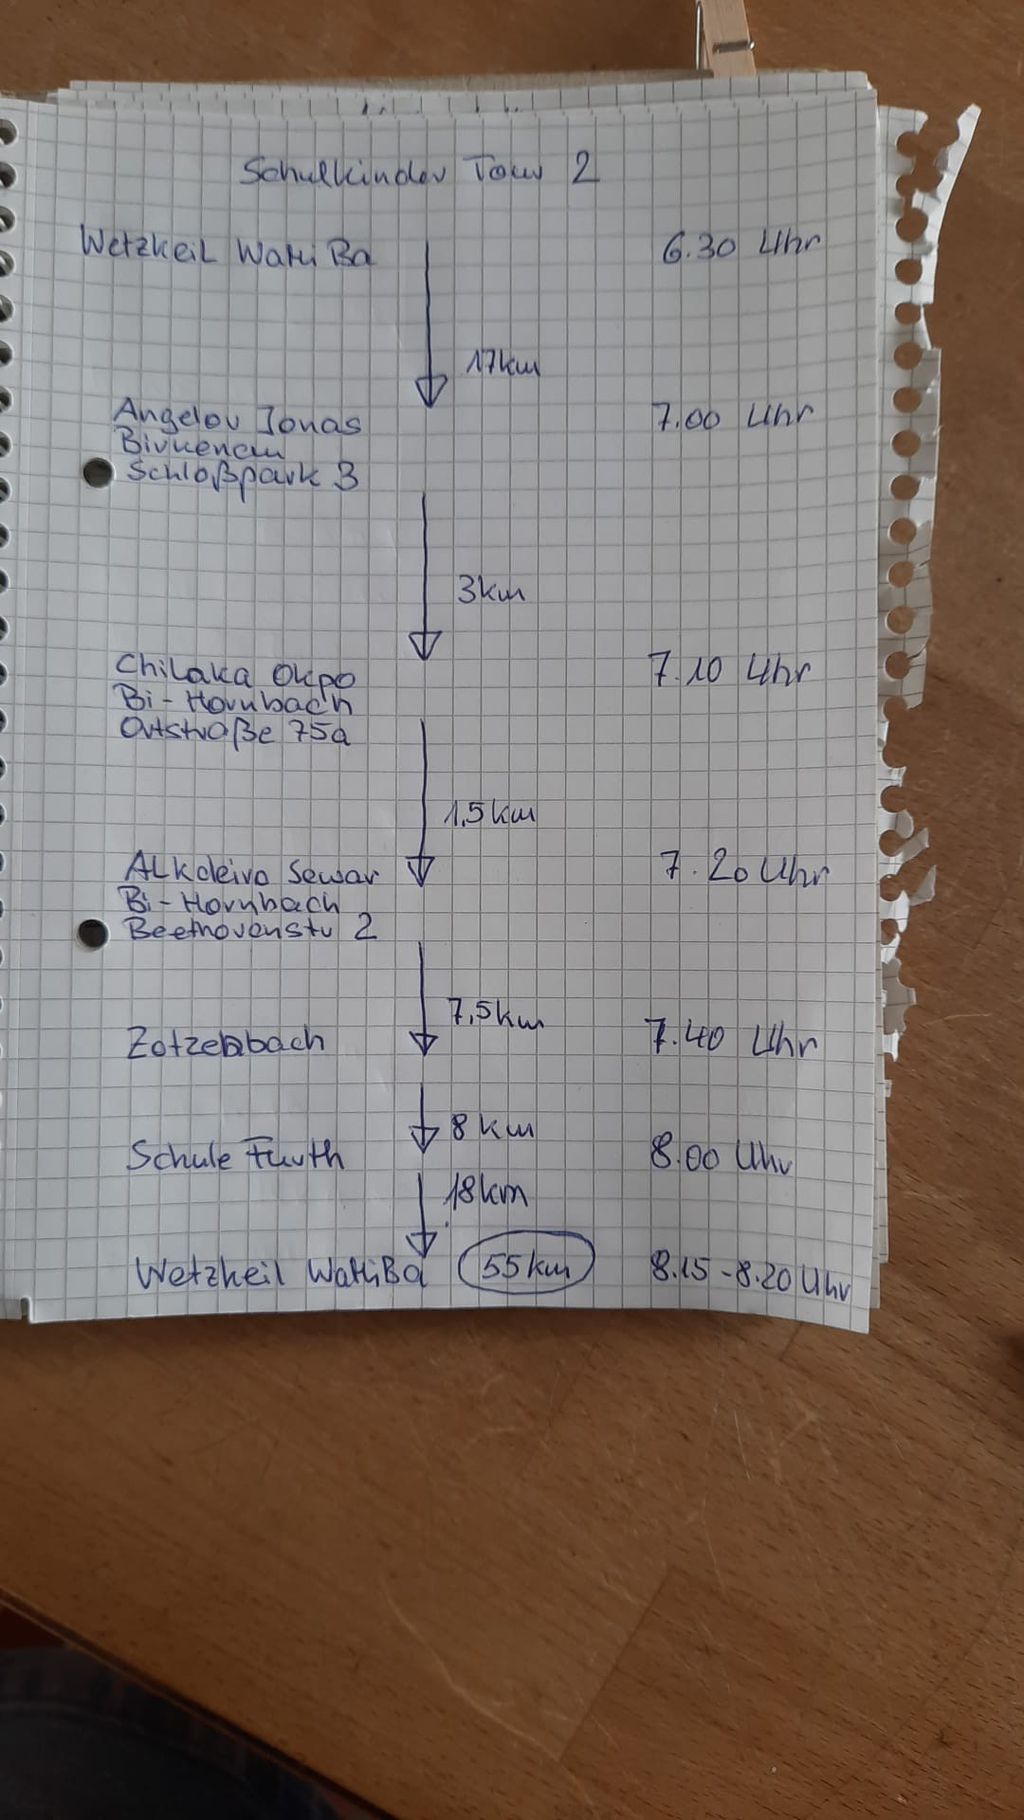 Schulkinder Tour 2
Wetzkeil WaMiBa 6.30 Uhr
17km
Angelov Jonas 7.00 Uhr
Birkenau
Schloßpark 3
3km
Chilaka Okpo 7.10 Uhr
Bi-Hornbach
Ortstraße 75a
1,5km
ALkdeiro Sewar 7.20 Uhr
Bi-Hornbach
Beethovenstr 2
7,5km
Zotzenbach 7.40 Uhr
8 km
Schule Fürth 8.00 Uhr
18km
Wetzkeil WaMiBa 55km 8.15-8.20 Uhr